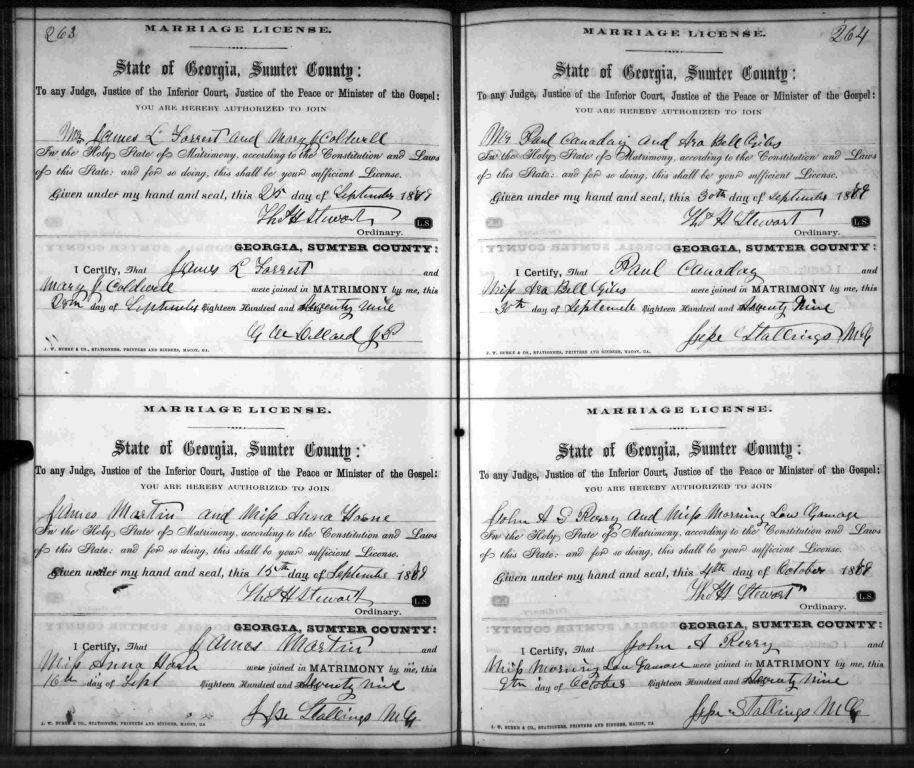 263
MARRIAGE LICENSE.
State of Georgia, Sumter County:
To any Judge, Justice of the Inferior Court, Justice of the Peace or Minister of the Gospel:
YOU ARE HEREBY AUTHORIZED TO JOIN
Mr. James L Forrest and Mary J Coldwell
In the Holy State of Matrimony, according to the Constitution and Laws
of this State: and for so doing, this shall be your sufficient License.
Given under my hand and seal, this 25 day of September 1879
Thos H Stewart L.S.
Ordinary.
GEORGIA, SUMTER COUNTY:
I Certify, That James L Forrest and
Mary J Coldwell were joined in MATRIMONY by me, this
day of September Eighteen Hundred and Seventy Nine
J P
J. W. BURKE & CO., STATIONERS, PRINTERS AND BINDERS, MACON, GA.
MARRIAGE LICENSE.
State of Georgia, Sumter County:
To any Judge, Justice of the Inferior Court, Justice of the Peace or Minister of the Gospel:
YOU ARE HEREBY AUTHORIZED TO JOIN
James Martin and Miss Anna Horne
In the Holy State of Matrimony, according to the Constitution and Laws
of this State: and for so doing, this shall be your sufficient License.
Given under my hand and seal, this 15th day of September 1879
Thos H Stewart L.S.
Ordinary.
GEORGIA, SUMTER COUNTY:
I Certify, That James Martin and
Miss Anna Horn were joined in MATRIMONY by me, this
16th day of Sept Eighteen Hundred and Seventy Nine
Jesse Stallings M G
J. W. BURKE & CO., STATIONERS, PRINTERS AND BINDERS, MACON, GA
264
MARRIAGE LICENSE.
State of Georgia, Sumter County:
To any Judge, Justice of the Inferior Court, Justice of the Peace or Minister of the Gospel:
YOU ARE HEREBY AUTHORIZED TO JOIN
Mr Paul Canaday and Ara Bell Giles
In the Holy State of Matrimony, according to the Constitution and Laws
of this State: and for so doing, this shall be your sufficient License.
Given under my hand and seal, this 30th day of September 1879
Thos H Stewart L.S.
Ordinary.
GEORGIA, SUMTER COUNTY:
I Certify, That Paul Canaday and
Miss Ara Bell Giles were joined in MATRIMONY by me, this
30th day of September Eighteen Hundred and Seventy Nine
Jesse Stallings M G
J. W. BURKE & CO., STATIONERS, PRINTERS AND BINDERS, MACON, GA.
MARRIAGE LICENSE.
State of Georgia, Sumter County:
To any Judge, Justice of the Inferior Court, Justice of the Peace or Minister of the Gospel:
YOU ARE HEREBY AUTHORIZED TO JOIN
John A S Rorry and Miss Morning Lou Gamage
In the Holy State of Matrimony, according to the Constitution and Laws
of this State: and for so doing, this shall be your sufficient License.
Given under my hand and seal, this 4th day of October 1879
Thos H Stewart L.S.
Ordinary.
GEORGIA, SUMTER COUNTY:
I Certify, That John A Rorry and
Miss Morning Lou were joined in MATRIMONY by me, this
9th day of October Eighteen Hundred and Seventy Nine
Jesse Stallings M G
J. W. BURKE & CO., STATIONERS, PRINTERS AND BINDERS, MACON, GA.